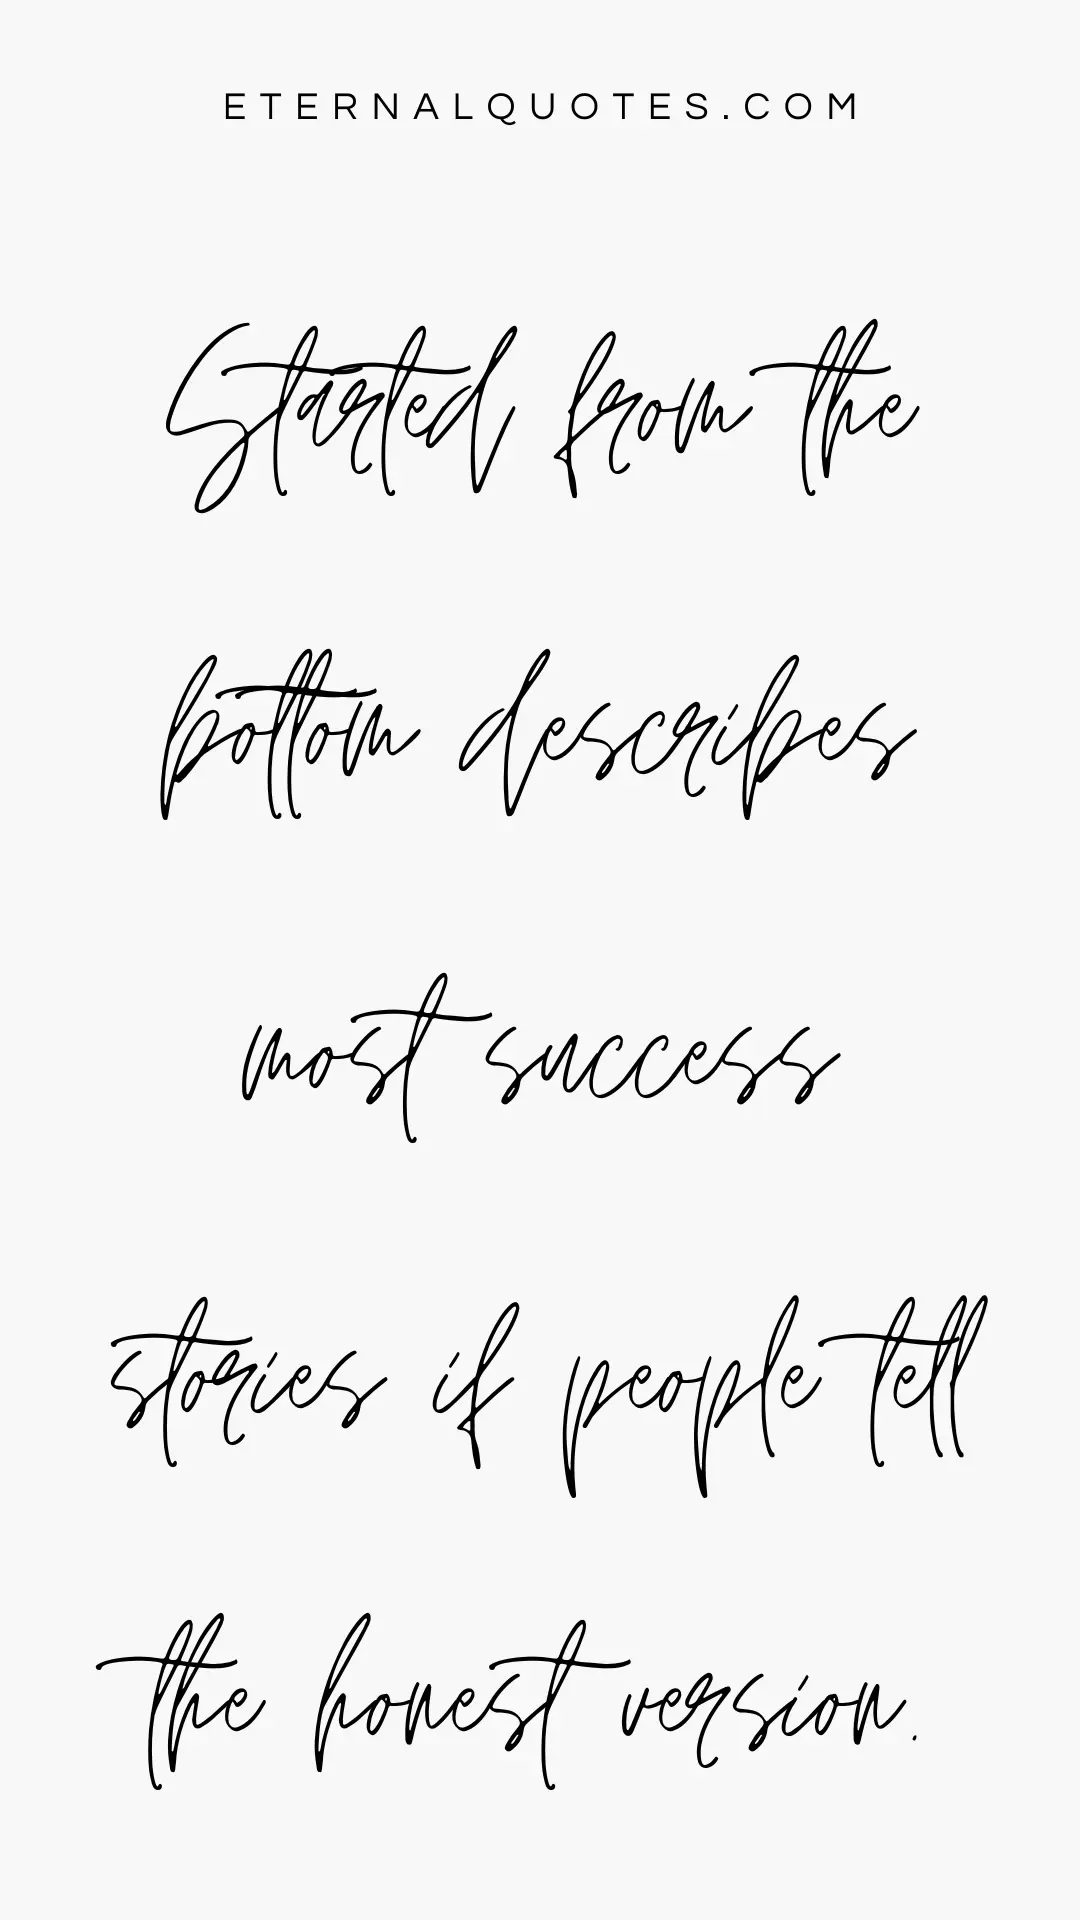 ETERNALQUOTES.COM
Started from the
bottom describes
most success
stories if people tell
the honest version.